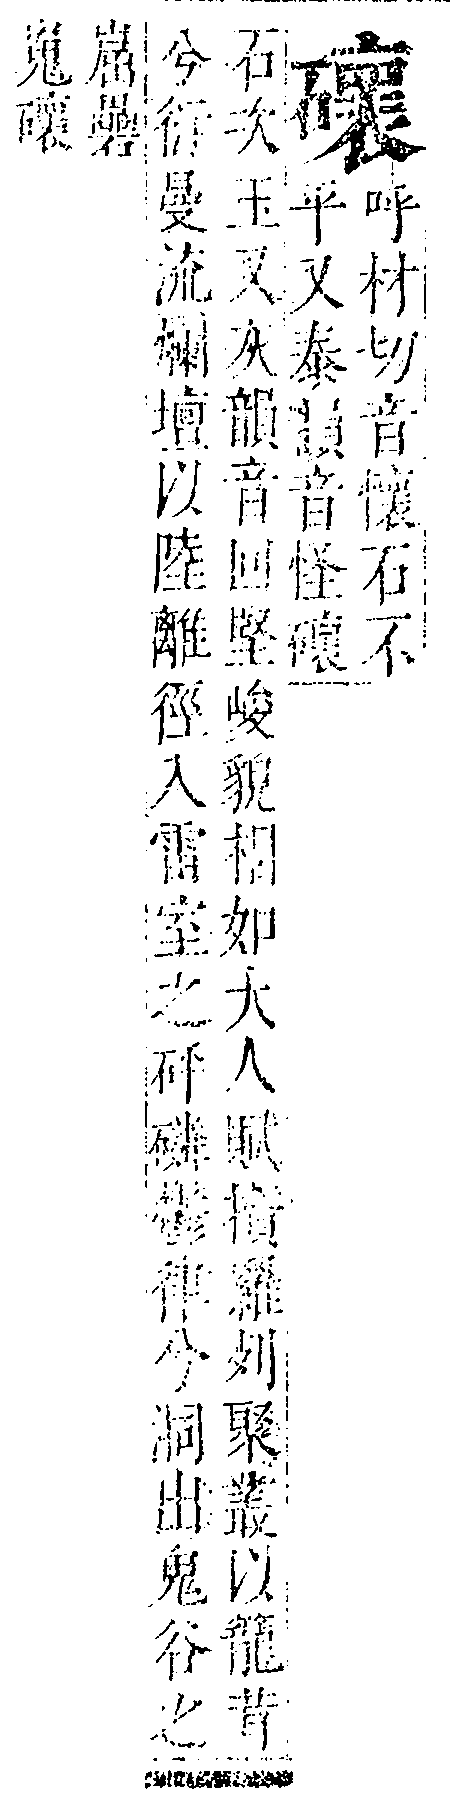 䃶
呼材切音懷石不
平又泰韻音怪䃶
石次玉又灰韻音回堅峻貌相如大人賦攢羅列聚叢以蘢茸
兮衍曼流爛壇以陸離徑入雷室之砰磷鬱律兮洞出鬼谷之
崫礨
嵬䃶